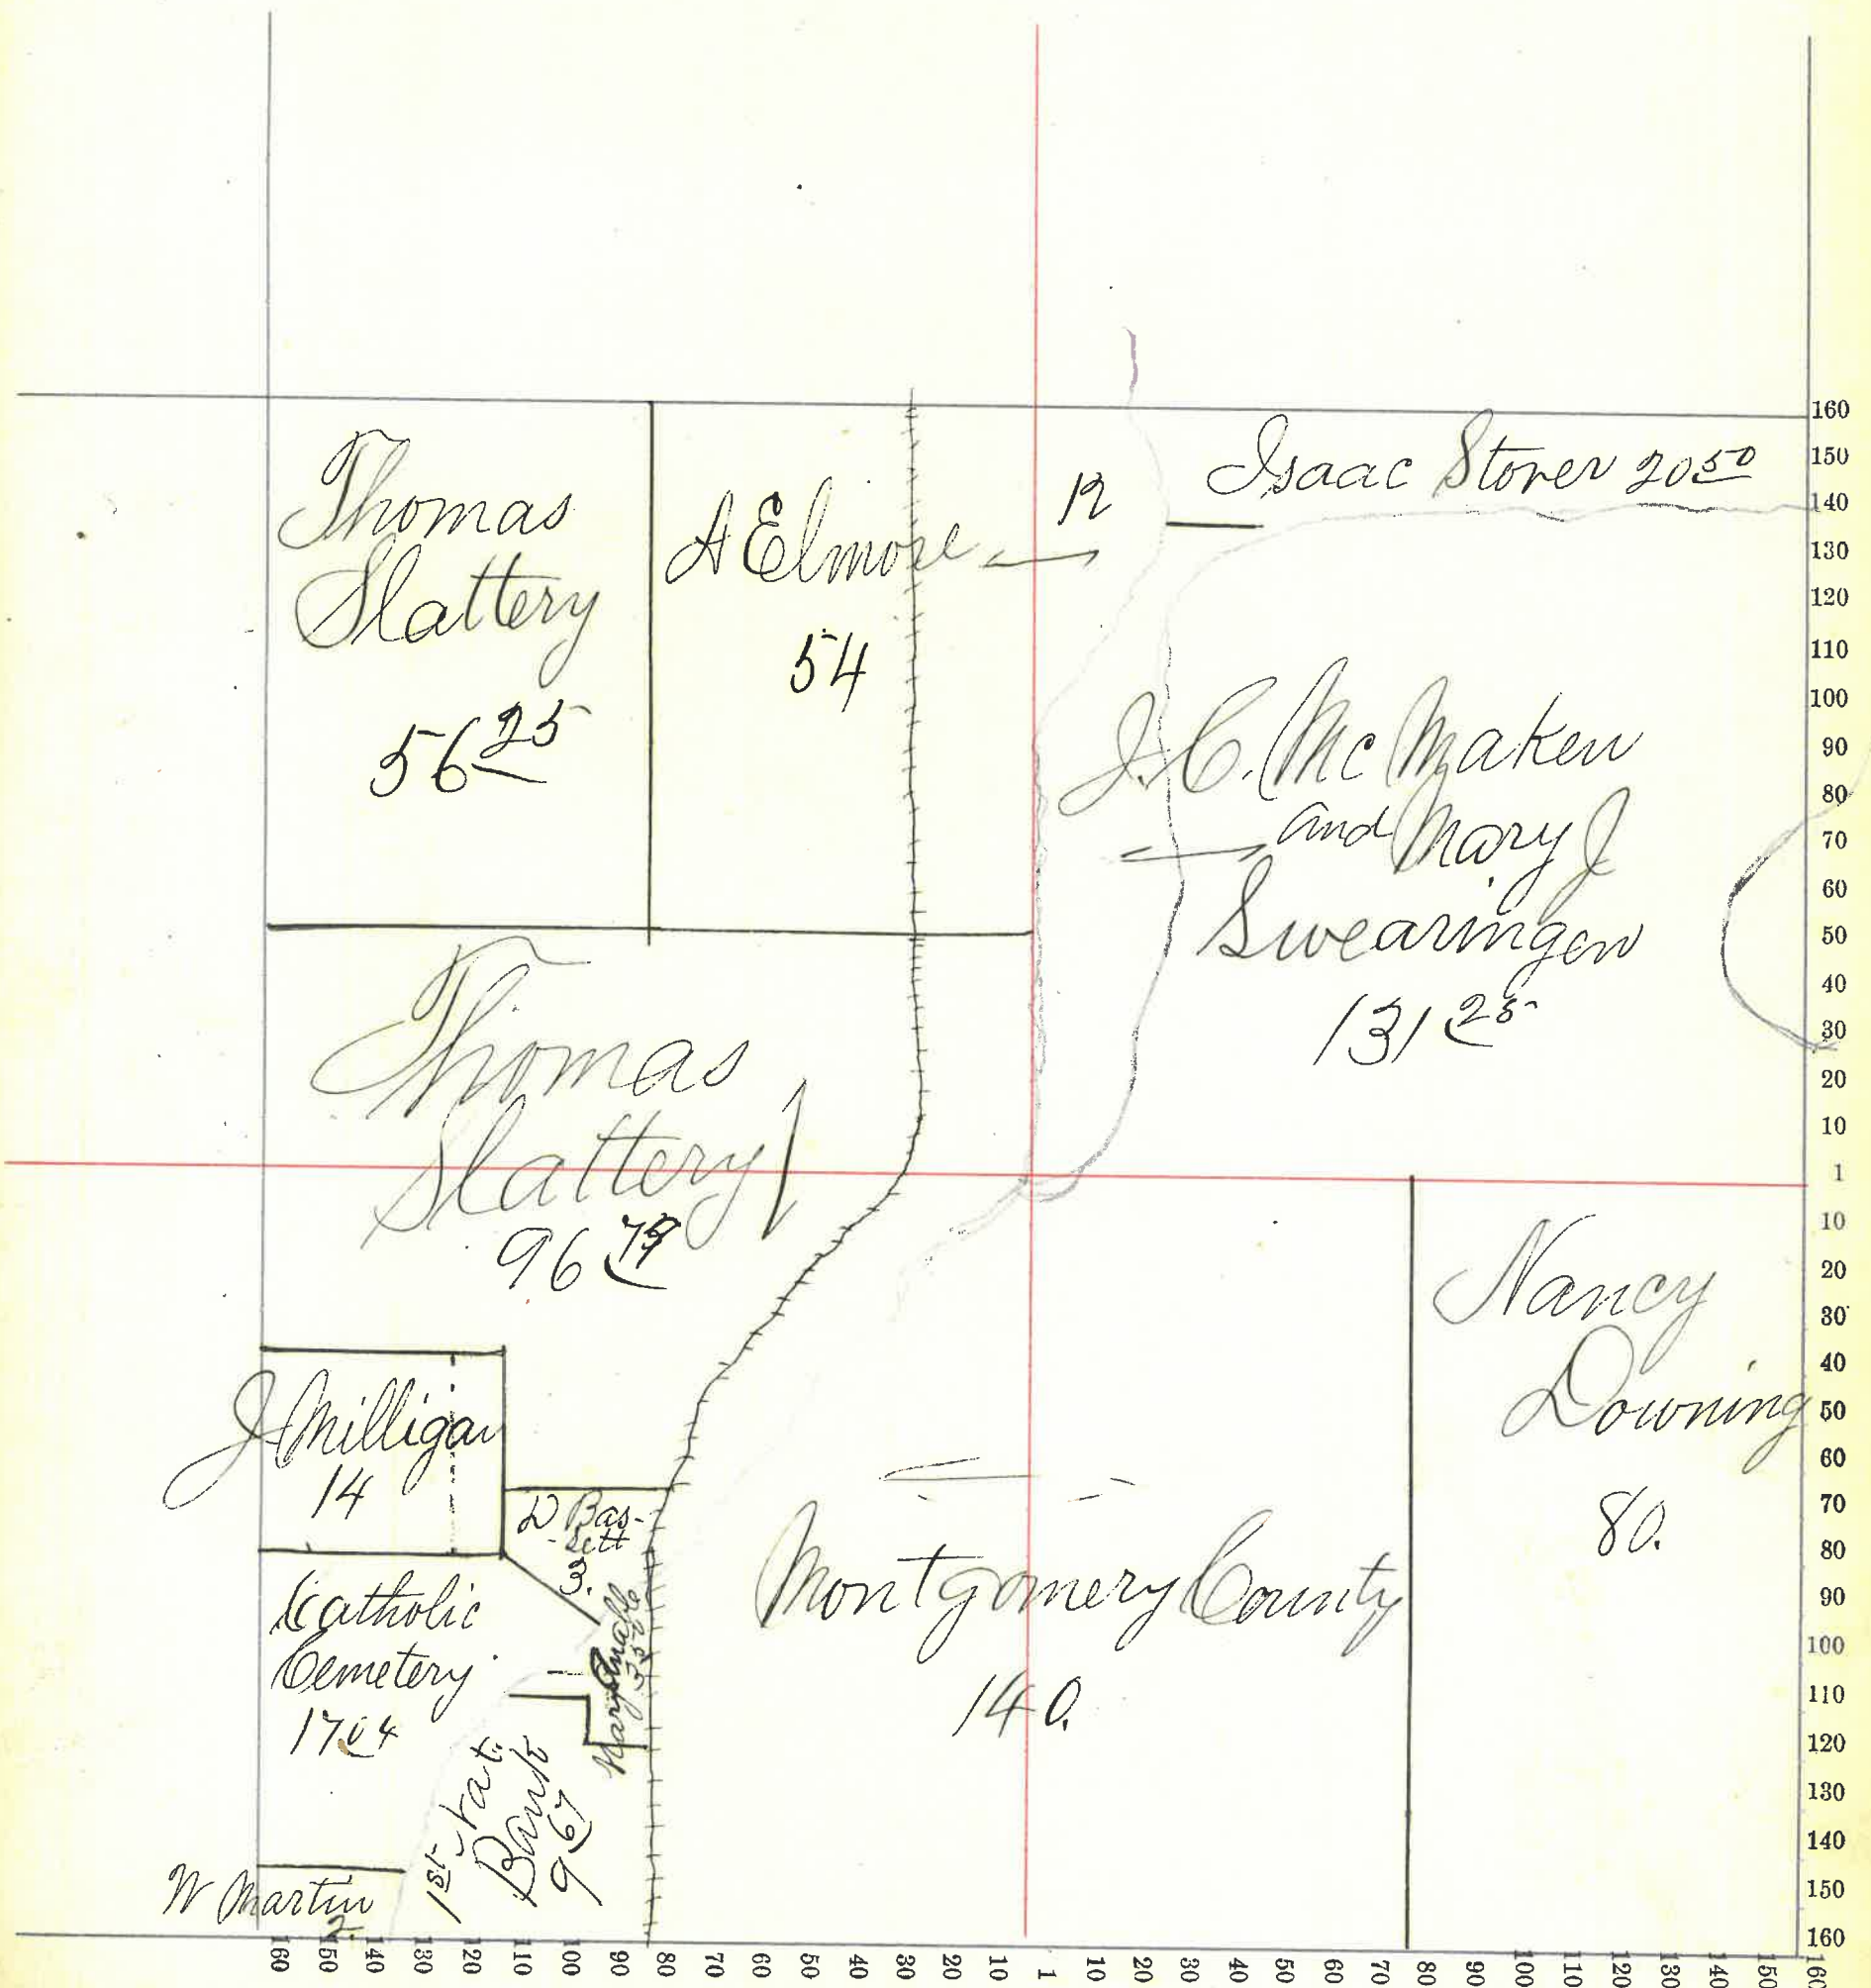 Thomas
Slattery
56 25
A Elmore
54
12
Isaac Stover 20 50
J. C. McMaken
and Mary J
Swearingen
131 25
Thomas
Slattery
96
J Milligan
14
D Bas-
-sett
3.
Catholic
Cemetery
17.04
Mary
350
1st Nat.
Bank
9 67
W Martin
2.
Montgomery County
140.
Nancy
Downing
80.
160
150
140
130
120
110
100
90
80
70
60
50
40
30
20
10
1
10
20
30
40
50
60
70
80
90
100
110
120
130
140
150
160
160 150 140 130 120 110 100 90 80 70 60 50 40 30 20 10 1 10 20 30 40 50 60 70 80 90 100 110 120 130 140 150 160